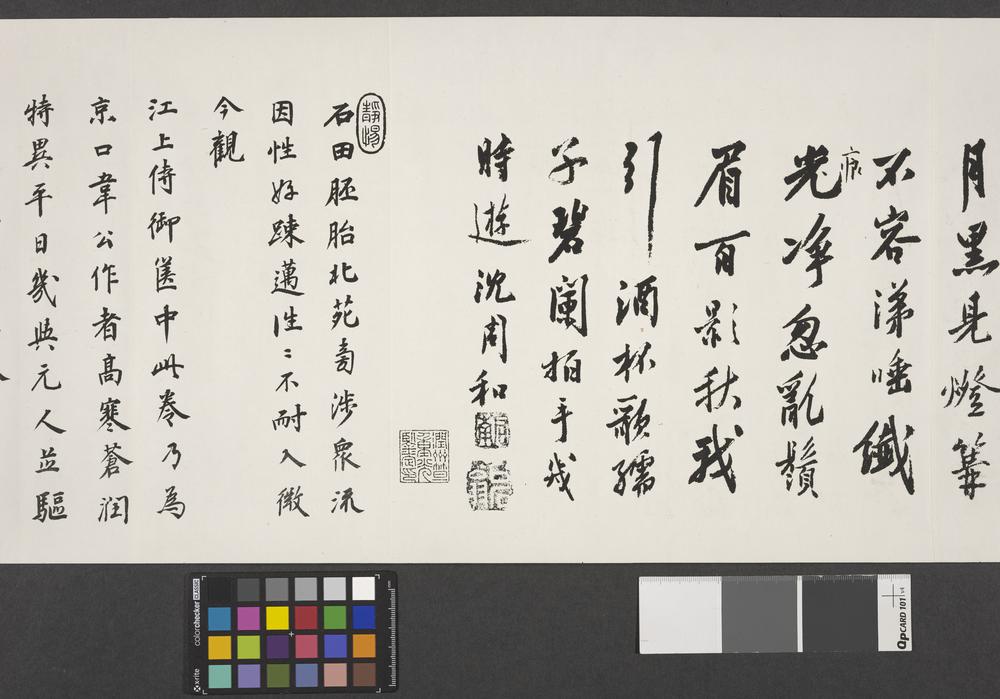 月黑見燈篝
不容涕唾纖
痕
光淨忽亂鬚
眉百影秋我
引酒杯歌孺
子碧闌拍手幾
時遊 沈周和
石田胚胎北苑旁涉眾流
因性好疎邁往〻不耐入微
今觀
江上侍御篋中此卷乃為
京口韋公作者高寒蒼润
特異平日幾與元人並驅
colorchecker CLASSIC
x-rite
QPCARD 101 v4